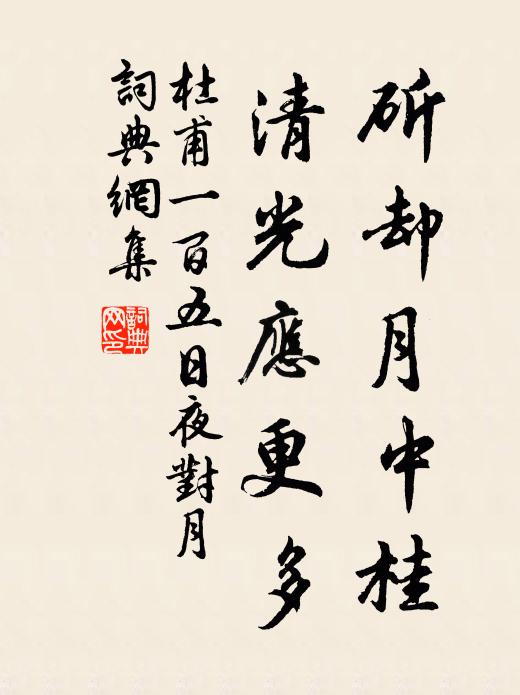 斫却月中桂
清光應更多
杜甫一百五日夜對月
詞典網集
詞典
网印